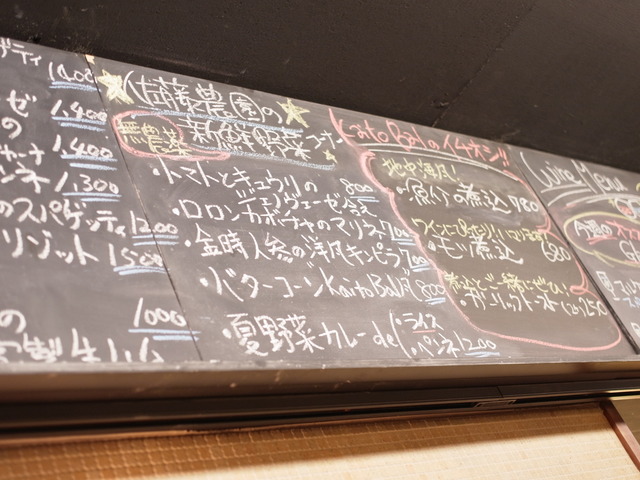 ゲティ
1400
ーゼ
1,400
の
1,400
ンネ 1,300
のスパゲッティ 1200
リゾット 1500
の
1000
佐藤農園の
無農薬 新鮮野菜コーナー
・トマトとキュウリの
ジェノヴェーゼ合え 800
・ロロンカボチャのマリネ
・金時人参の洋風キンピラ 700
・バターコーン KaitoBal風 800
・夏野菜カレー de ライス
ペンネ 1200
Kaito Balのイチオシ!!
地中海風!
の煮込 780
モツ煮込 680
煮込と ご一緒にぜひ!
ガーリックトースト 250
Wine Menu
今週の